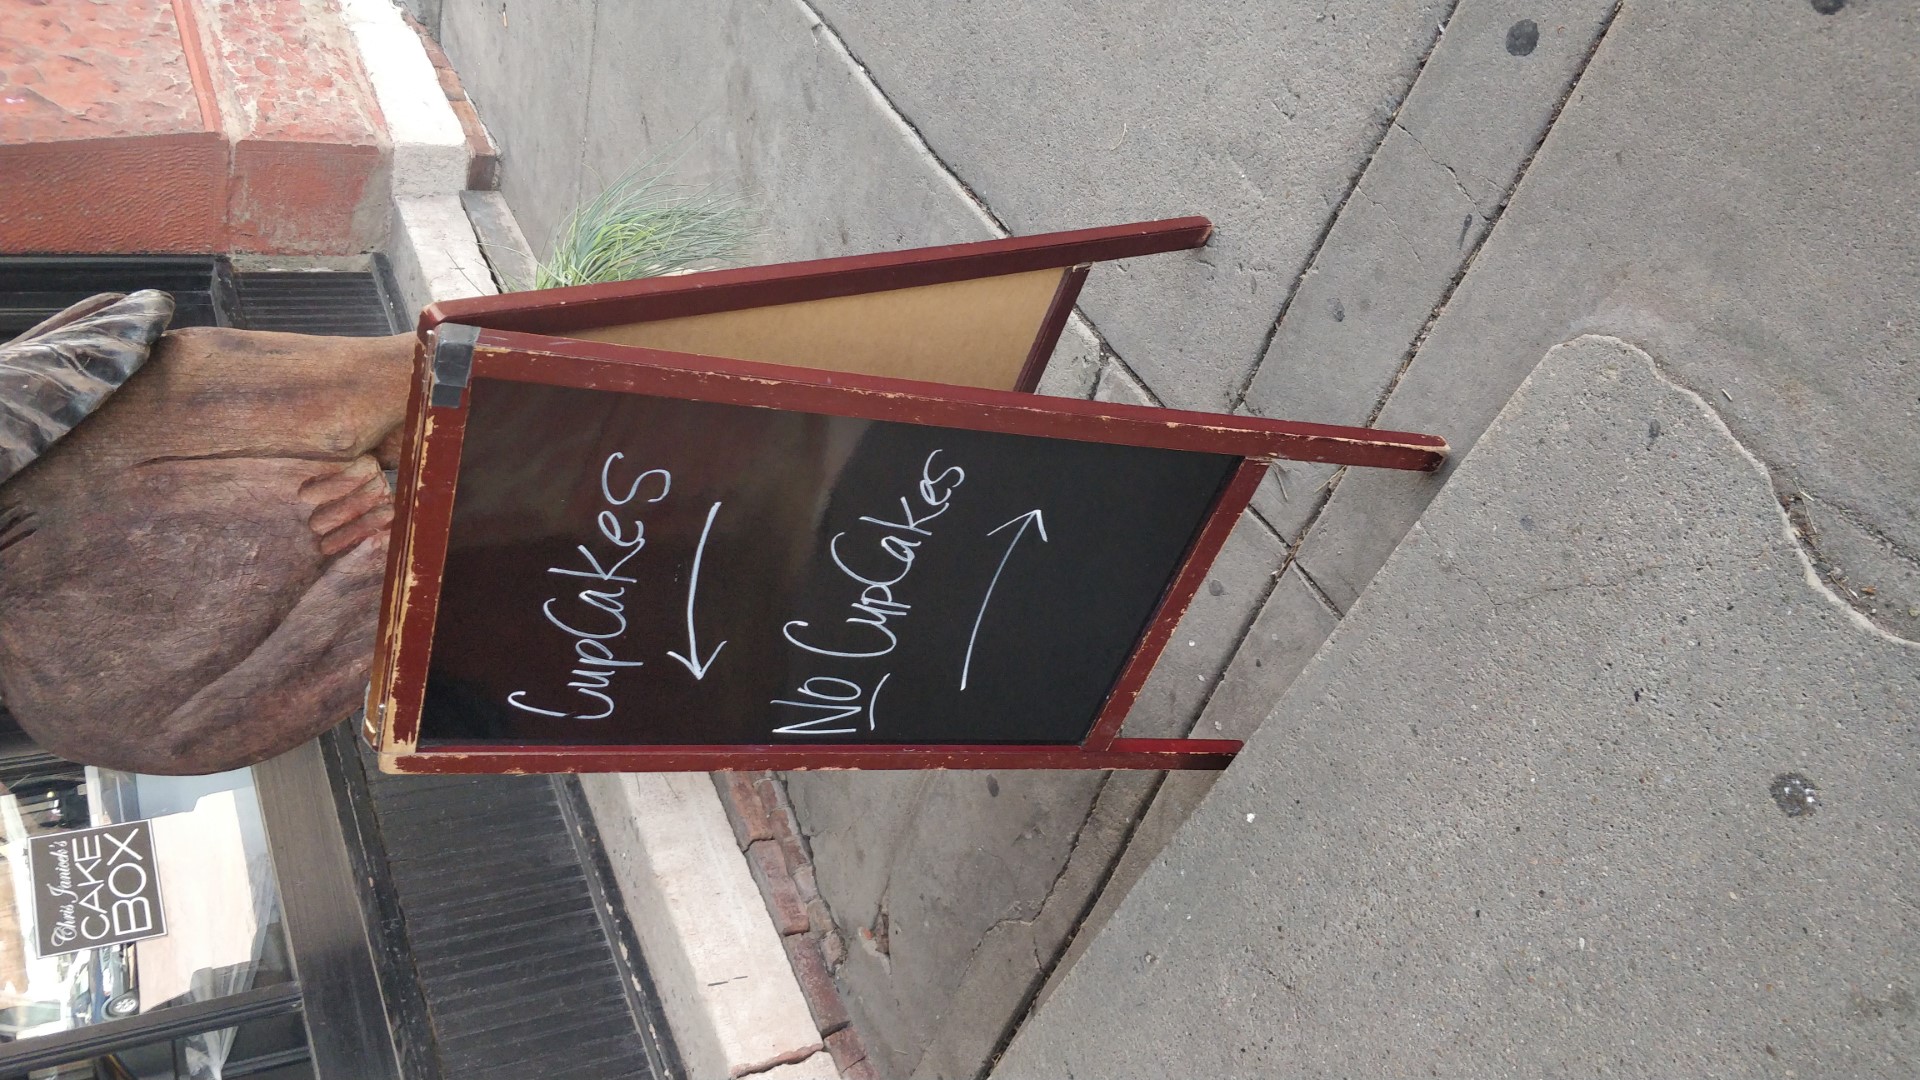 Chris Janicek's
CAKE
BOX
CupCakes
←
NO CupCakes
→